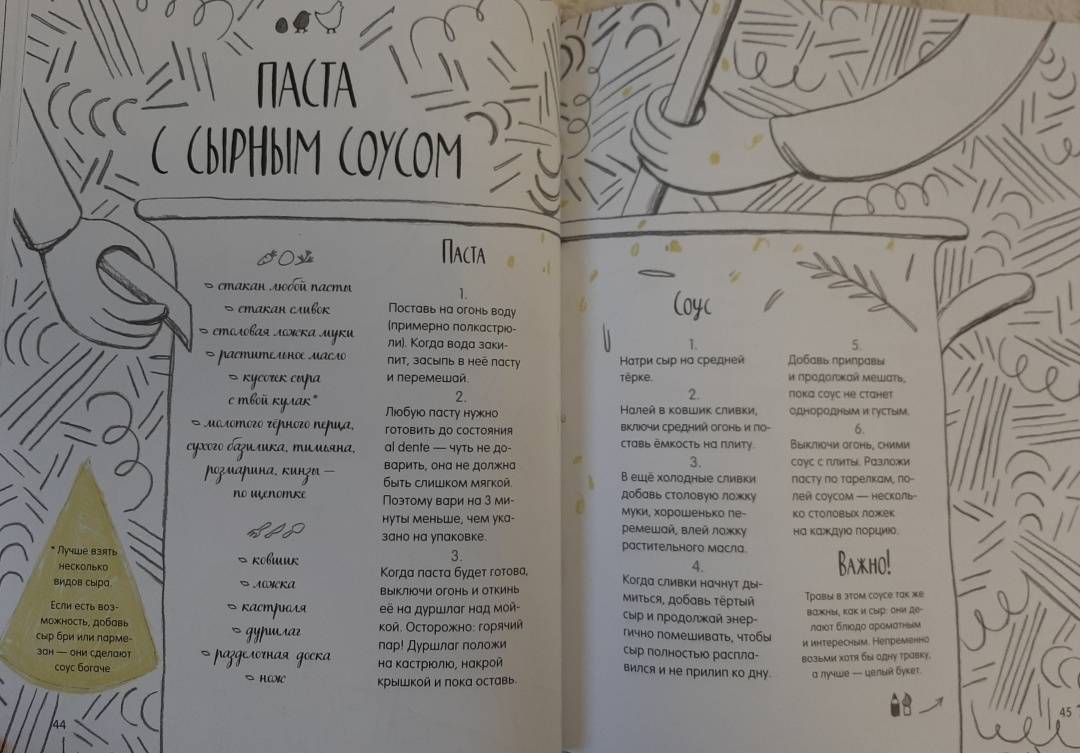 ПАСТА
С СЫРНЫМ СОУСОМ
стакан любой пасты
стакан сливок
столовая ложка муки
растительное масло
кусочек сыра
с твой кулак*
молотого чёрного перца,
сухого базилика, тимьяна,
розмарина, кинзы —
по щепотке
ковшик
ложка
кастрюля
дуршлаг
разделочная доска
нож
* Лучше взять
несколько
видов сыра.
Если есть воз-
можность, добавь
сыр бри или парме-
зан — они сделают
соус богаче
44
ПАСТА
1.
Поставь на огонь воду
(примерно полкастрю-
ли). Когда вода заки-
пит, засыпь в неё пасту
и перемешай.
2.
Любую пасту нужно
готовить до состояния
al dente — чуть не до-
варить, она не должна
быть слишком мягкой.
Поэтому вари на 3 ми-
нуты меньше, чем ука-
зано на упаковке.
3.
Когда паста будет готова,
выключи огонь и откинь
её на дуршлаг над мой-
кой. Осторожно: горячий
пар! Дуршлаг положи
на кастрюлю, накрой
крышкой и пока оставь.
СОУС
1.
Натри сыр на средней
тёрке.
2.
Налей в ковшик сливки,
включи средний огонь и по-
ставь ёмкость на плиту.
3.
В ещё холодные сливки
добавь столовую ложку
муки, хорошенько пе-
ремешай, влей ложку
растительного масла.
4.
Когда сливки начнут ды-
миться, добавь тёртый
сыр и продолжай энер-
гично помешивать, чтобы
сыр полностью распла-
вился и не прилип ко дну.
5.
Добавь приправы
и продолжай мешать,
пока соус не станет
однородным и густым.
6.
Выключи огонь, сними
соус с плиты. Разложи
пасту по тарелкам, по-
лей соусом — несколь-
ко столовых ложек
на каждую порцию.
ВАЖНО!
Травы в этом соусе так же
важны, как и сыр: они де-
лают блюдо ароматным
и интересным. Непременно
возьми хотя бы одну травку,
а лучше — целый букет.
45